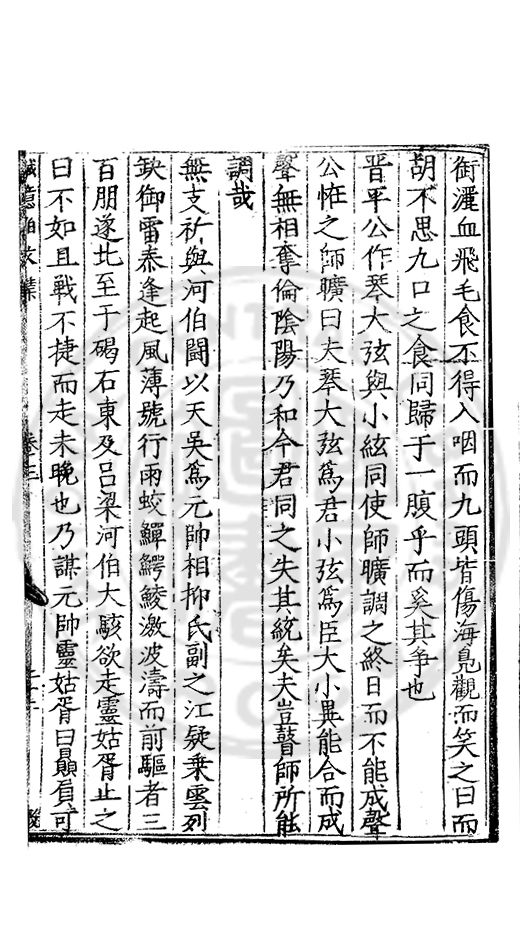 銜灑血飛毛食不得入咽而九頭皆傷海鳧觀而笑之曰而
胡不思九口之食同歸于一腹乎而奚其爭也
晉平公作琴大弦與小絃同使師曠調之終日而不能成聲
公恠之師曠曰夫琴大弦爲君小弦爲臣大小異能合而成
聲無相奪倫陰陽乃和今君同之失其統矣夫豈瞽師所能
調哉
無支祈與河伯鬪以天吳爲元帥相抑氏副之江疑乗雲列
缺御雷泰逢起風薄號行雨蛟鱓鰐鯪激波濤而前驅者三
百朋遂北至于碣石東及吕梁河伯大駭欲走靈姑胥止之
曰不如且戰不捷而走未晚也乃謀元帥靈姑胥曰贔屓可
誠意伯文集
卷三